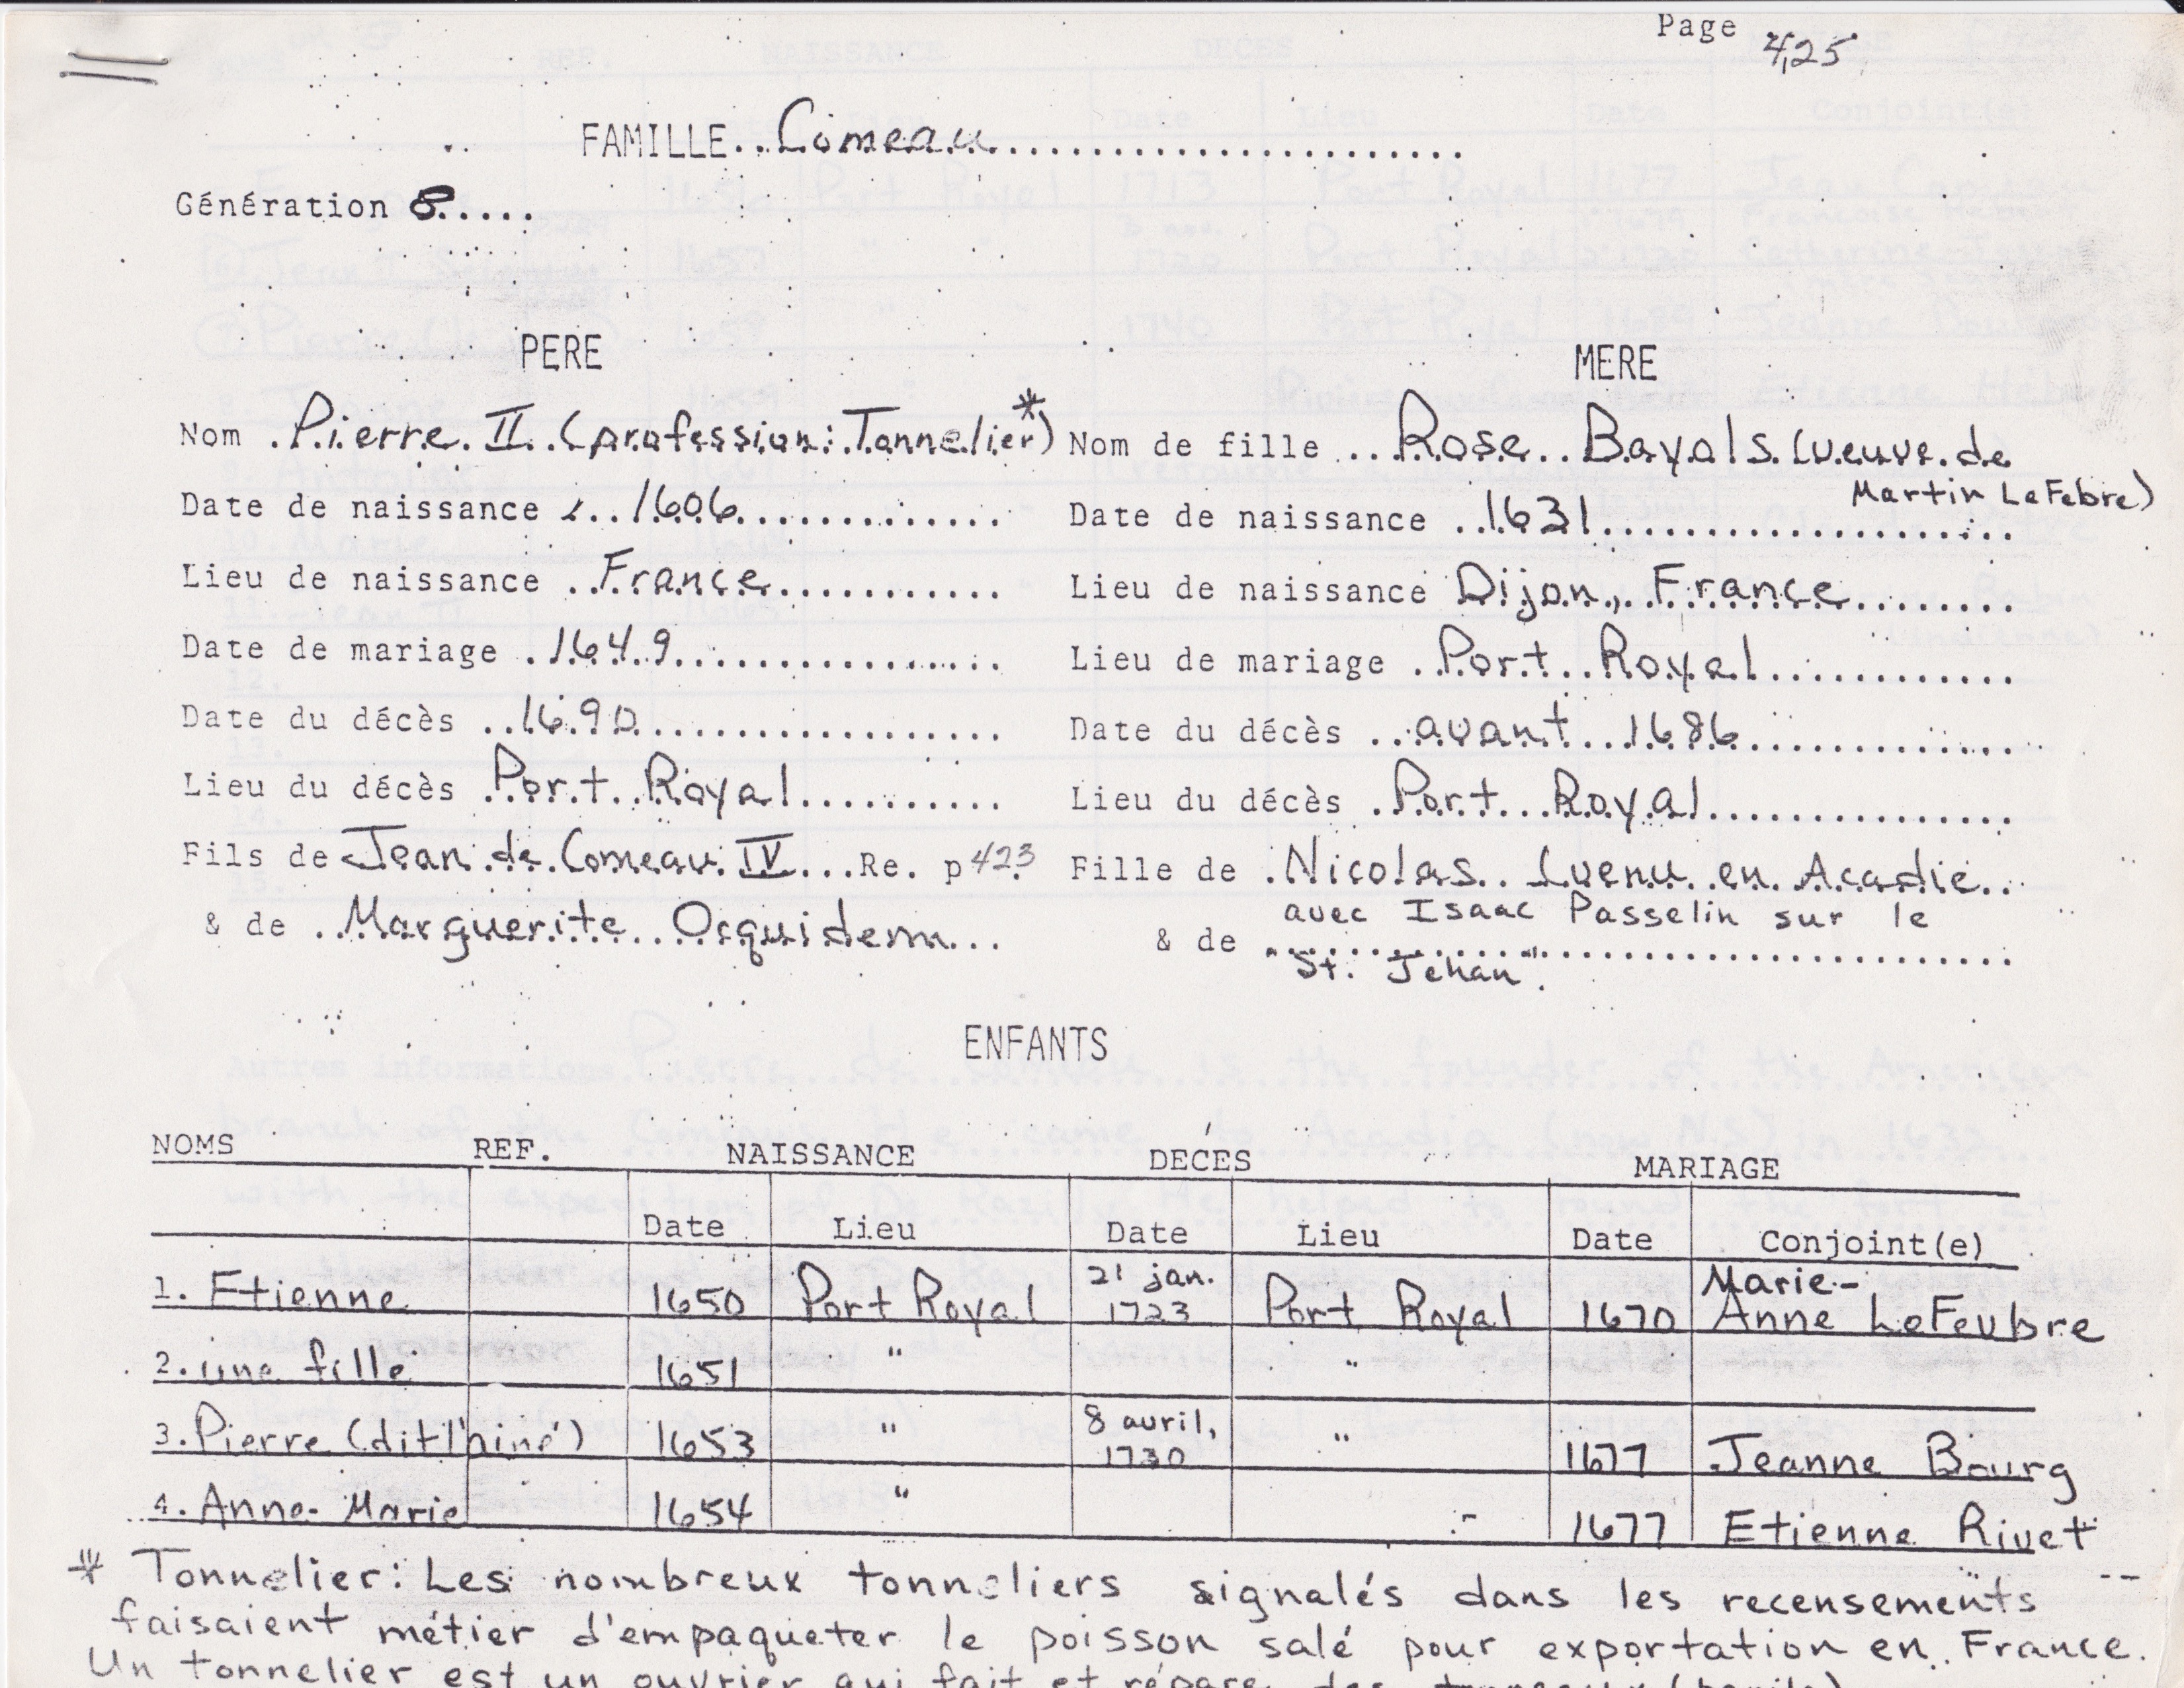 Page 425
FAMILLE..Comeau........................
Génération 8.....
PERE
MERE
Nom .Pierre II (profession: Tonnelier*)
Nom de fille ...Rose..Bayols (veuve de
Martin LeFebre)
Date de naissance ...1606..............
Date de naissance ..1631....................
Lieu de naissance ..France............
Lieu de naissance Dijon, France........
Date de mariage .1649..................
Lieu de mariage .Port Royal.............
Date du décès ..1690...................
Date du décès ...avant...1686................
Lieu du décès .Port Royal...........
Lieu du décès .Port...Royal.................
Fils de Jean de Comeau IV...Re. p 423
Fille de .Nicolas.. (venu en Acadie..
avec Isaac Passelin sur le
& de ..Marguerite Ocquidem...
& de ........................................
"St. Jehan".
ENFANTS
NOMS REF. NAISSANCE DECES MARIAGE
Date Lieu Date Lieu Date Conjoint(e)
1. Etienne 1650 Port Royal 21 jan. 1723 Port Royal 1670 Marie-Anne LeFeubre
2. une fille 1651 " "
3. Pierre (dit l'ainé) 1653 " 8 avril, 1730 " 1677 Jeanne Bourg
4. Anne-Marie 1654 " 1677 Etienne Rivet
* Tonnelier: Les nombreux tonneliers signalés dans les recensements
faisaient métier d'empaqueter le poisson salé pour exportation en France.
Un tonnelier est un ouvrier qui fait et répare des tonneaux (barils)